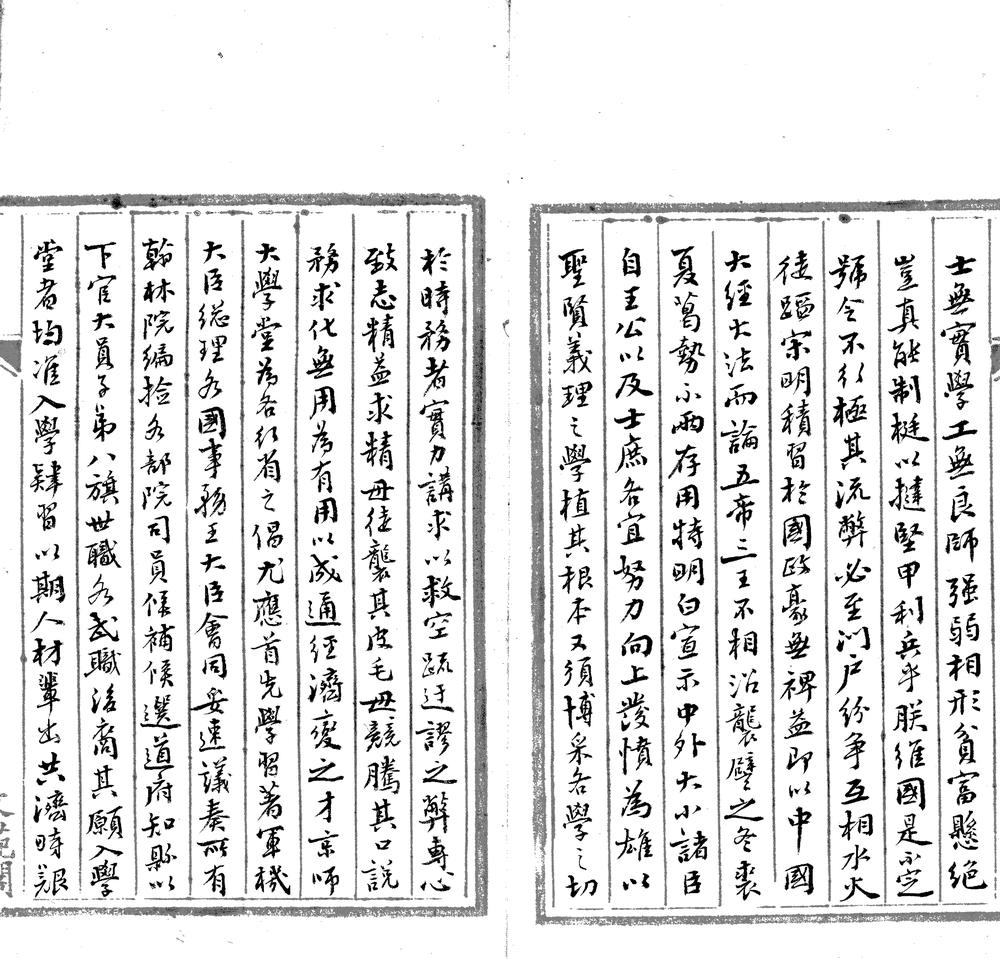 士無實學工無良師強弱相形貧富懸絕
豈真能制梃以撻堅甲利兵乎朕維國是不定
號令不行極其流弊必至門戶紛爭互相水火
徒蹈宋明積習於國政毫無裨益即以中國
大經大法而論五帝三王不相沿襲譬之冬裘
夏葛勢不兩存用特明白宣示中外大小諸臣
自王公以及士庶各宜努力向上發憤為雄以
聖賢義理之學植其根本又須博采各學之切
於時務者實力講求以救空疏迂謬之弊專心
致志精益求精毋徒襲其皮毛毋競騰其口說
務求化無用為有用以成通經濟變之才京師
大學堂為各行省之倡尤應首先學習著軍機
大臣總理各國事務王大臣會同妥速議奏所有
翰林院編檢各部院司員候補候選道府知縣以
下官大員子弟八旗世職各武職後裔其願入學
堂者均准入學肄習以期人材輩出共濟時艱